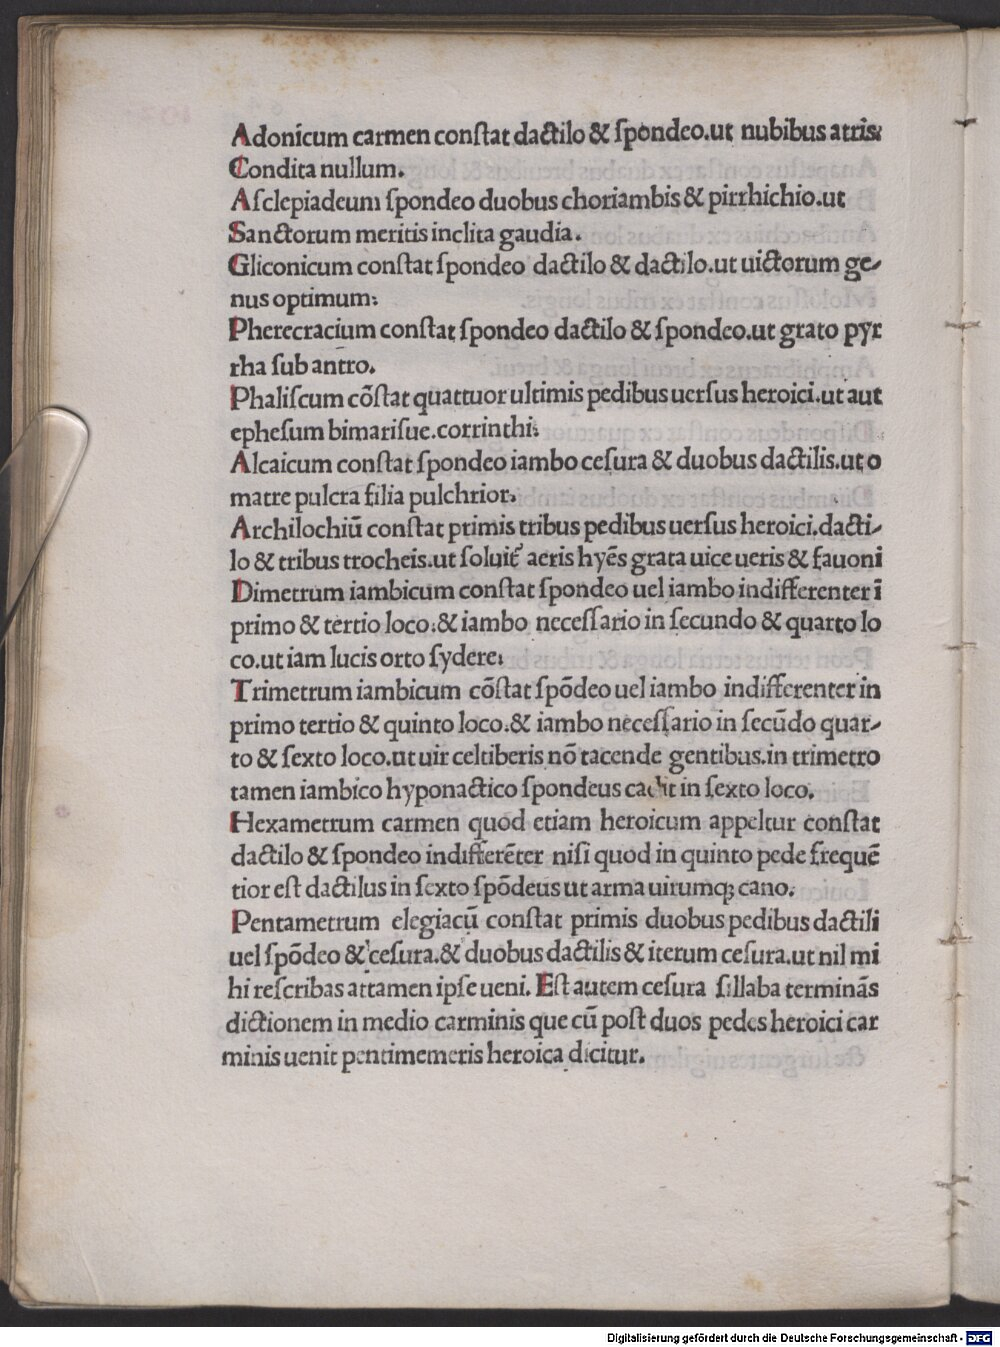 Adonicum carmen conſtat dactilo & ſpondeo.ut nubibus atris:
Condita nullum.
Aſclepiadeum ſpondeo duobus choriambis & pirrhichio.ut
Sanctorum meritis inclita gaudia.
Gliconicum conſtat ſpondeo dactilo & dactilo.ut uictorum ge-
nus optimum:
Pherecracium conſtat ſpondeo dactilo & ſpondeo.ut grato pyr
rha ſub antro.
Phaliſcum cõſtat quattuor ultimis pedibus uerſus heroici.ut aut
epheſum bimariſue.corrinthi:
Alcaicum conſtat ſpondeo iambo ceſura & duobus dactilis.ut o
matre pulcra filia pulchrior.
Archilochiũ conſtat primis tribus pedibus uerſus heroici.dacti-
lo & tribus trocheis.ut ſoluit᷑ aeris hyẽs grata uice ueris & fauoni
Dimetrum iambicum conſtat ſpondeo uel iambo indifferenter ĩ
primo & tertio loco.& iambo neceſſario in ſecundo & quarto lo
co.ut iam lucis orto ſydere:
Trimetrum iambicum cõſtat ſpõdeo uel iambo indifferenter in
primo tertio & quinto loco.& iambo neceſſario in ſecũdo quar-
to & ſexto loco.ut uir celtiberis nõ tacende gentibus.in trimetro
tamen iambico hyponactico ſpondeus cadit in ſexto loco.
Hexametrum carmen quod etiam heroicum appeltur conſtat
dactilo & ſpondeo indifferẽter niſi quod in quinto pede frequẽ
tior eſt dactilus in ſexto ſpõdeus ut arma uirumqꝫ cano.
Pentametrum elegiacũ conſtat primis duobus pedibus dactili
uel ſpõdeo & ceſura.& duobus dactilis & iterum ceſura.ut nil mi
hi reſcribas attamen ipſe ueni. Eſt autem ceſura ſillaba terminãs
dictionem in medio carminis que cũ poſt duos pedes heroici car
minis uenit pentimemeris heroica dicitur.
Digitalisierung gefördert durch die Deutsche Forschungsgemeinschaft - DFG